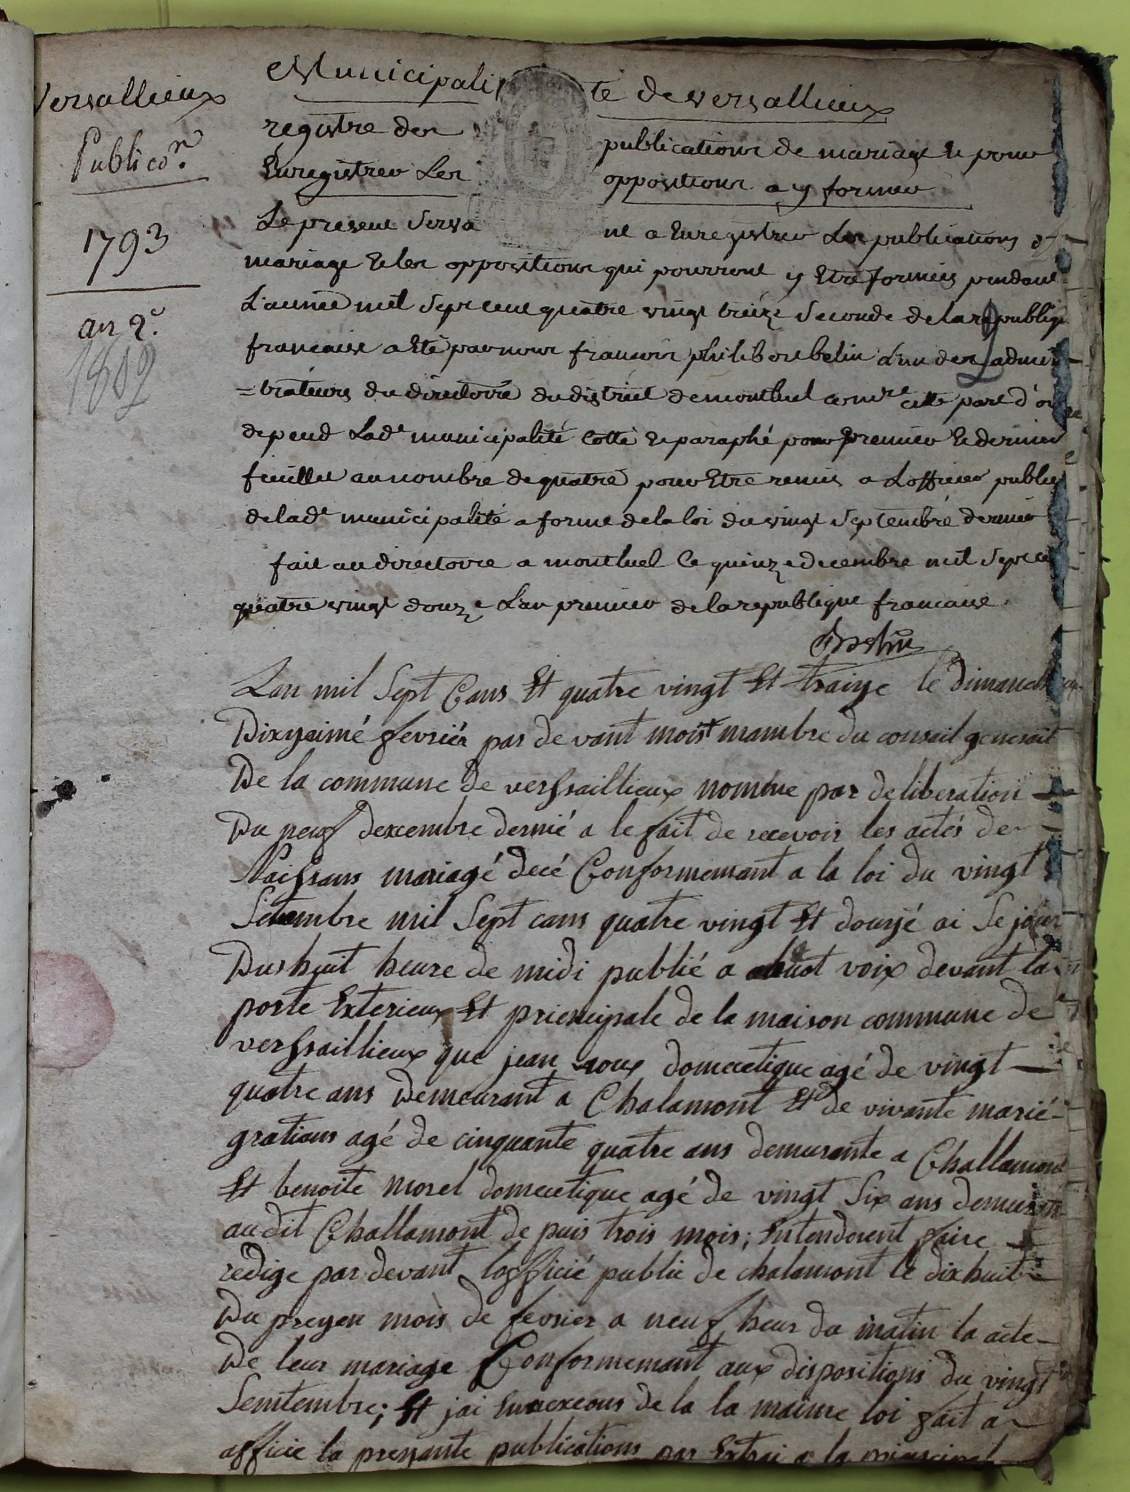 Versallieux
Publicaon.
1793
an 2e
1802
Municipalité de versallieux
registre des publications de mariage et pour
Enregistrer Les oppositions a y former
Le present servant a Enregistrer Les publications de
mariage et les oppositions qui pourront y Etre formées pendant
L'année mil sept cent quatre vingt treize seconde de la republique
francaise a Eté par nous francois philibert belin L'un des adminis
=trateurs du directoire du district de montluel
depend Lade municipalité Cotté et paraphé pour premier et dernier
feuillet au nombre de quatre pour Etre remis a L'officier public
de lade municipalité a forme de la loi du vingt septembre dernier
fait au directoire a montluel Ce quinze decembre mil sept cent
quatre vingt douze L'an premier de la republique francaise.
Lan mil Sept Cans Et quatre vingt Et traize le dimanche
Dixzaimé fevriér par de vant moi mambre du conseil generait
De la commune de verssaillieux nomme par deliberation
Du neuf dexcembre dernié a le fait de recevoir les actés de
Naissans mariagé decé Conformemant a la loi du vingt
Setembre mil Sept cans quatre vingt Et douzé ai Se jour
Dushuit heure de midi publié a haut voix devant la
porte Exterieux Et priencipale de la maison commune de
verssaillieux que jean roux domeetique agé de vingt
quatre ans Demeurant a Chalamont Et de vivante marié
gratious agé de cinquante quatre ans demurante a Challamont
Et benoite morel domeetique agé de vingt Six ans demurant
au dit Challamont de puis trois mois; Entendoient faire
redige par devant lofficié public de chalamont le dixhuit
Du prezen mois de fevrier a neuf heur du matin la acte
De leur mariage Conformemant aux dispositions du vingt
Semtembre; Et jai de la la maime loi fait a
afficie la prezante publications par Extrai a la